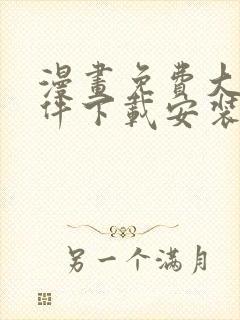 漫畫免費大
件下載安裝
另一个满月